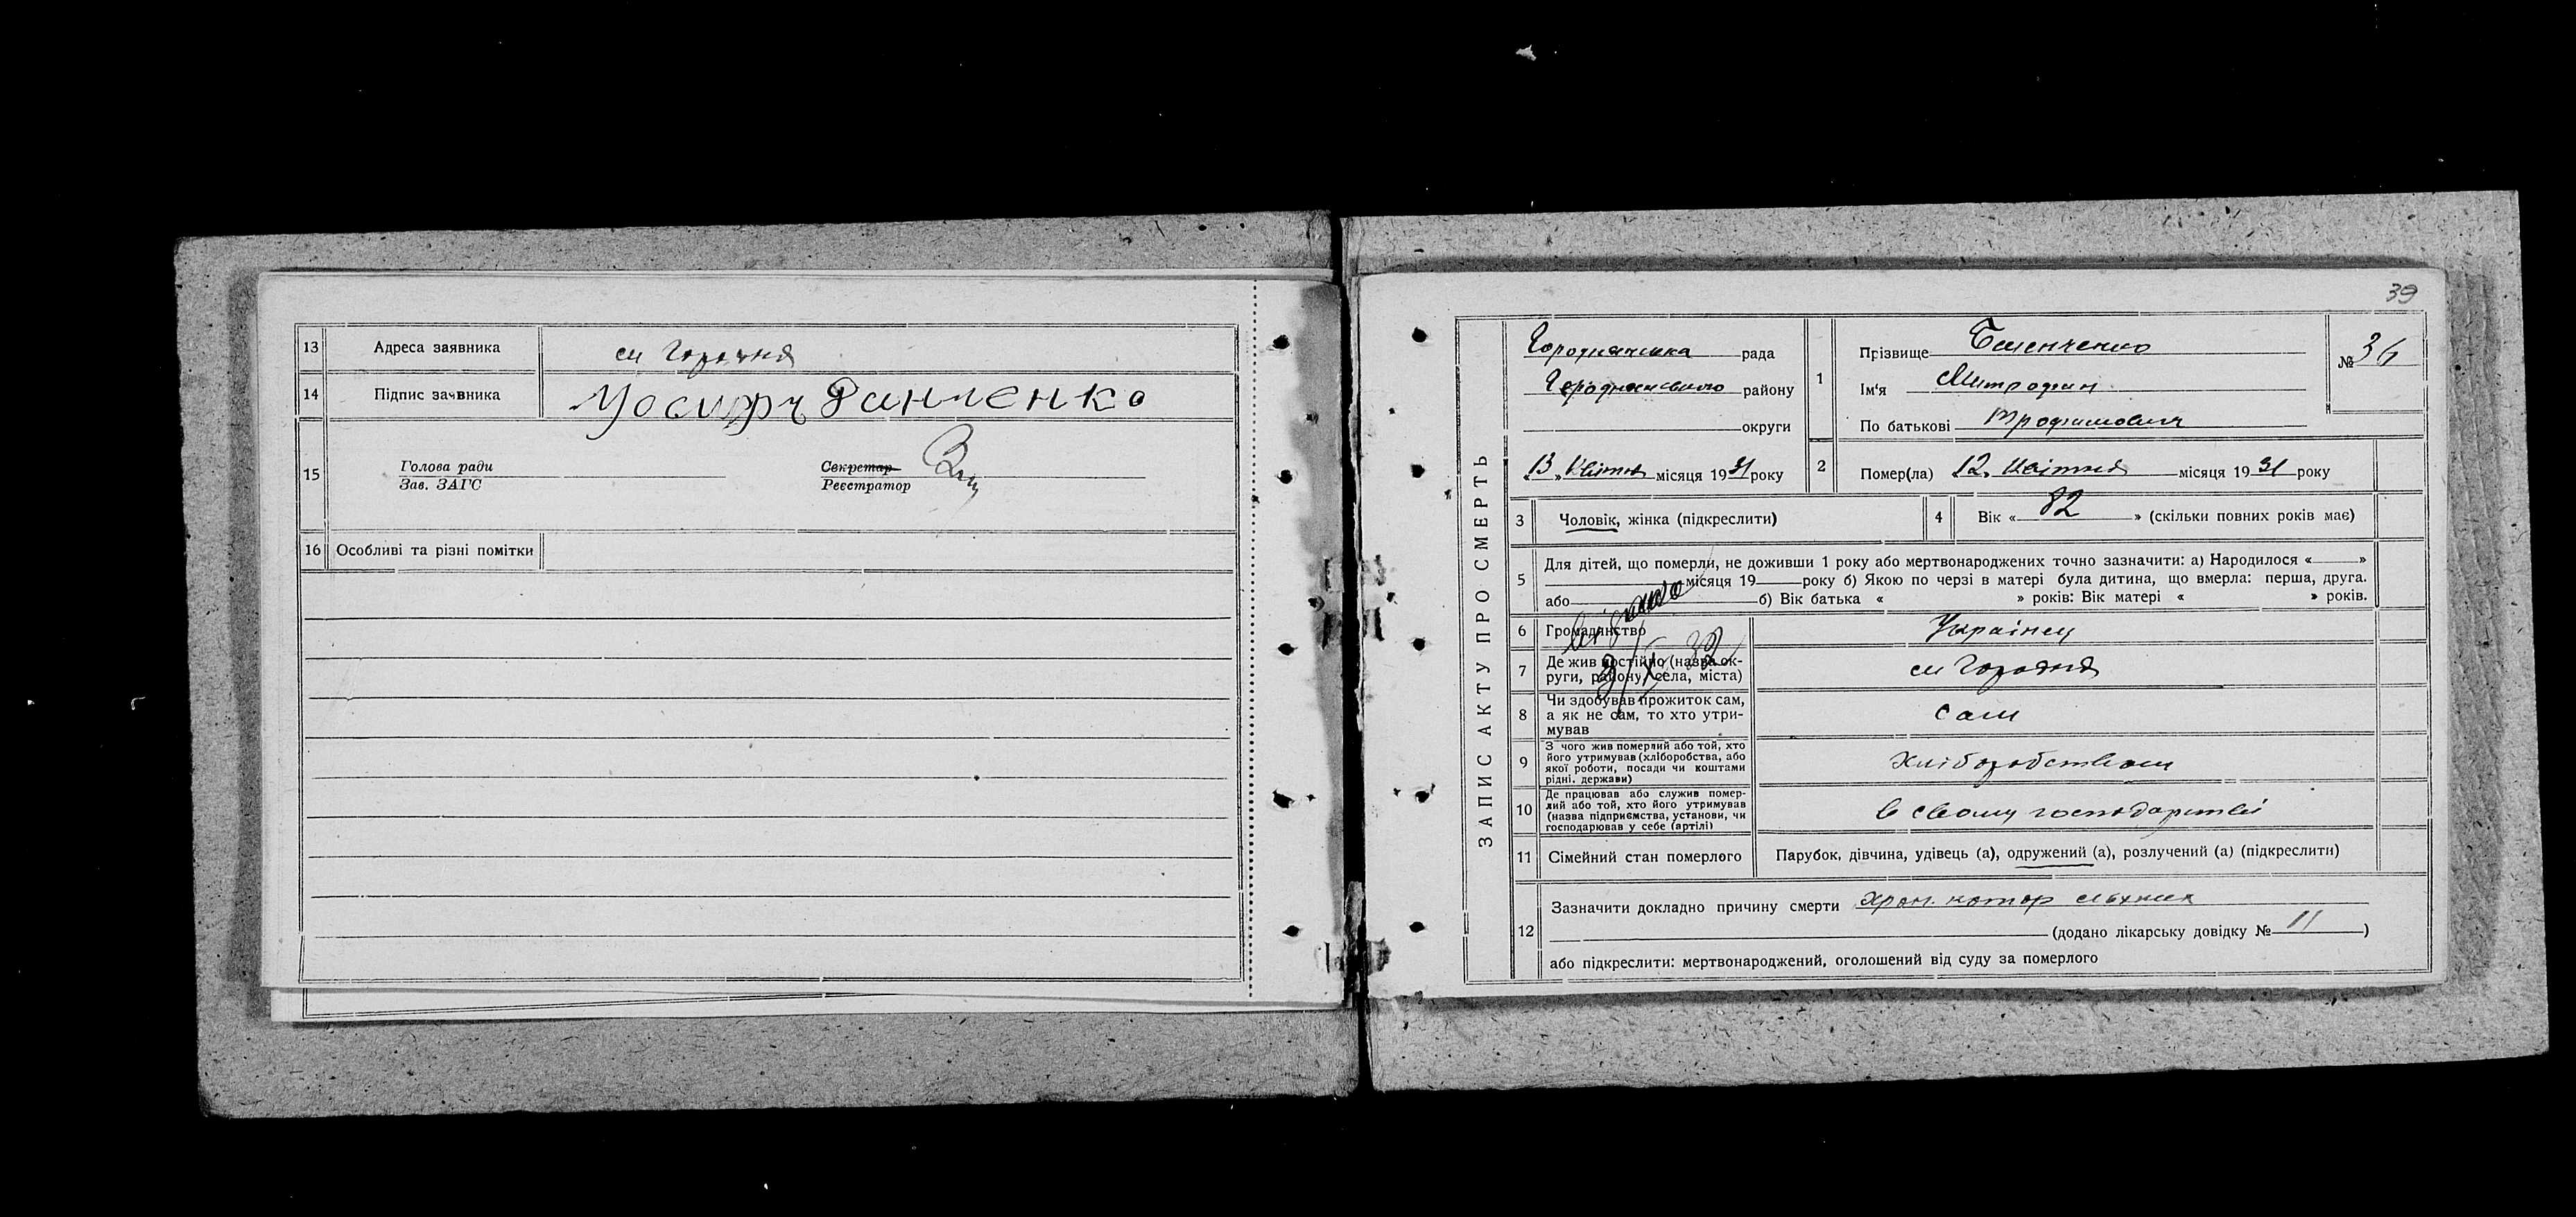 13 Адреса заявника см Городня
14 Підпис заявника Иосифъ Данченко
15 Голова ради Секретар
Зав. ЗАГС Реєстратор
16 Особливі та різні помітки
39
ЗАПИС АКТУ ПРО СМЕРТЬ
Городнянська рада
Городнянського району
округи
«13» Квітня місяця 1931 року
1 Прізвище
Ім'я Митрофан
По батькові Трофимович
№ 36
2 Помер(ла) 12 Квітня місяця 1931 року
3 Чоловік, жінка (підкреслити)
4 Вік «82» (скільки повних років має)
5 Для дітей, що померли, не доживши 1 року або мертвонароджених точно зазначити: а) Народилося « »
місяця 19 року б) Якою по черзі в матері була дитина, що вмерла: перша, друга.
або б) Вік батька « » років: Вік матері « » років.
6 Громадянство Українец
7 Де жив постійно (назва ок-
руги, району, села, міста) см Городня
8 Чи здобував прожиток сам,
а як не сам, то хто утри-
мував сам
9 З чого жив померлий або той, хто
його утримував (хліборобства, або
якої роботи, посади чи коштами
рідні, держави) Хліборобством
10 Де працював або служив помер-
лий або той, хто його утримував
(назва підприємства, установи, чи
господарював у себе (артілі) в свому господарстві
11 Сімейний стан померлого Парубок, дівчина, удівець (а), одружений (а), розлучений (а) (підкреслити)
12 Зазначити докладно причину смерти Хрон. катар
(додано лікарську довідку № 11)
або підкреслити: мертвонароджений, оголошений від суду за померлого